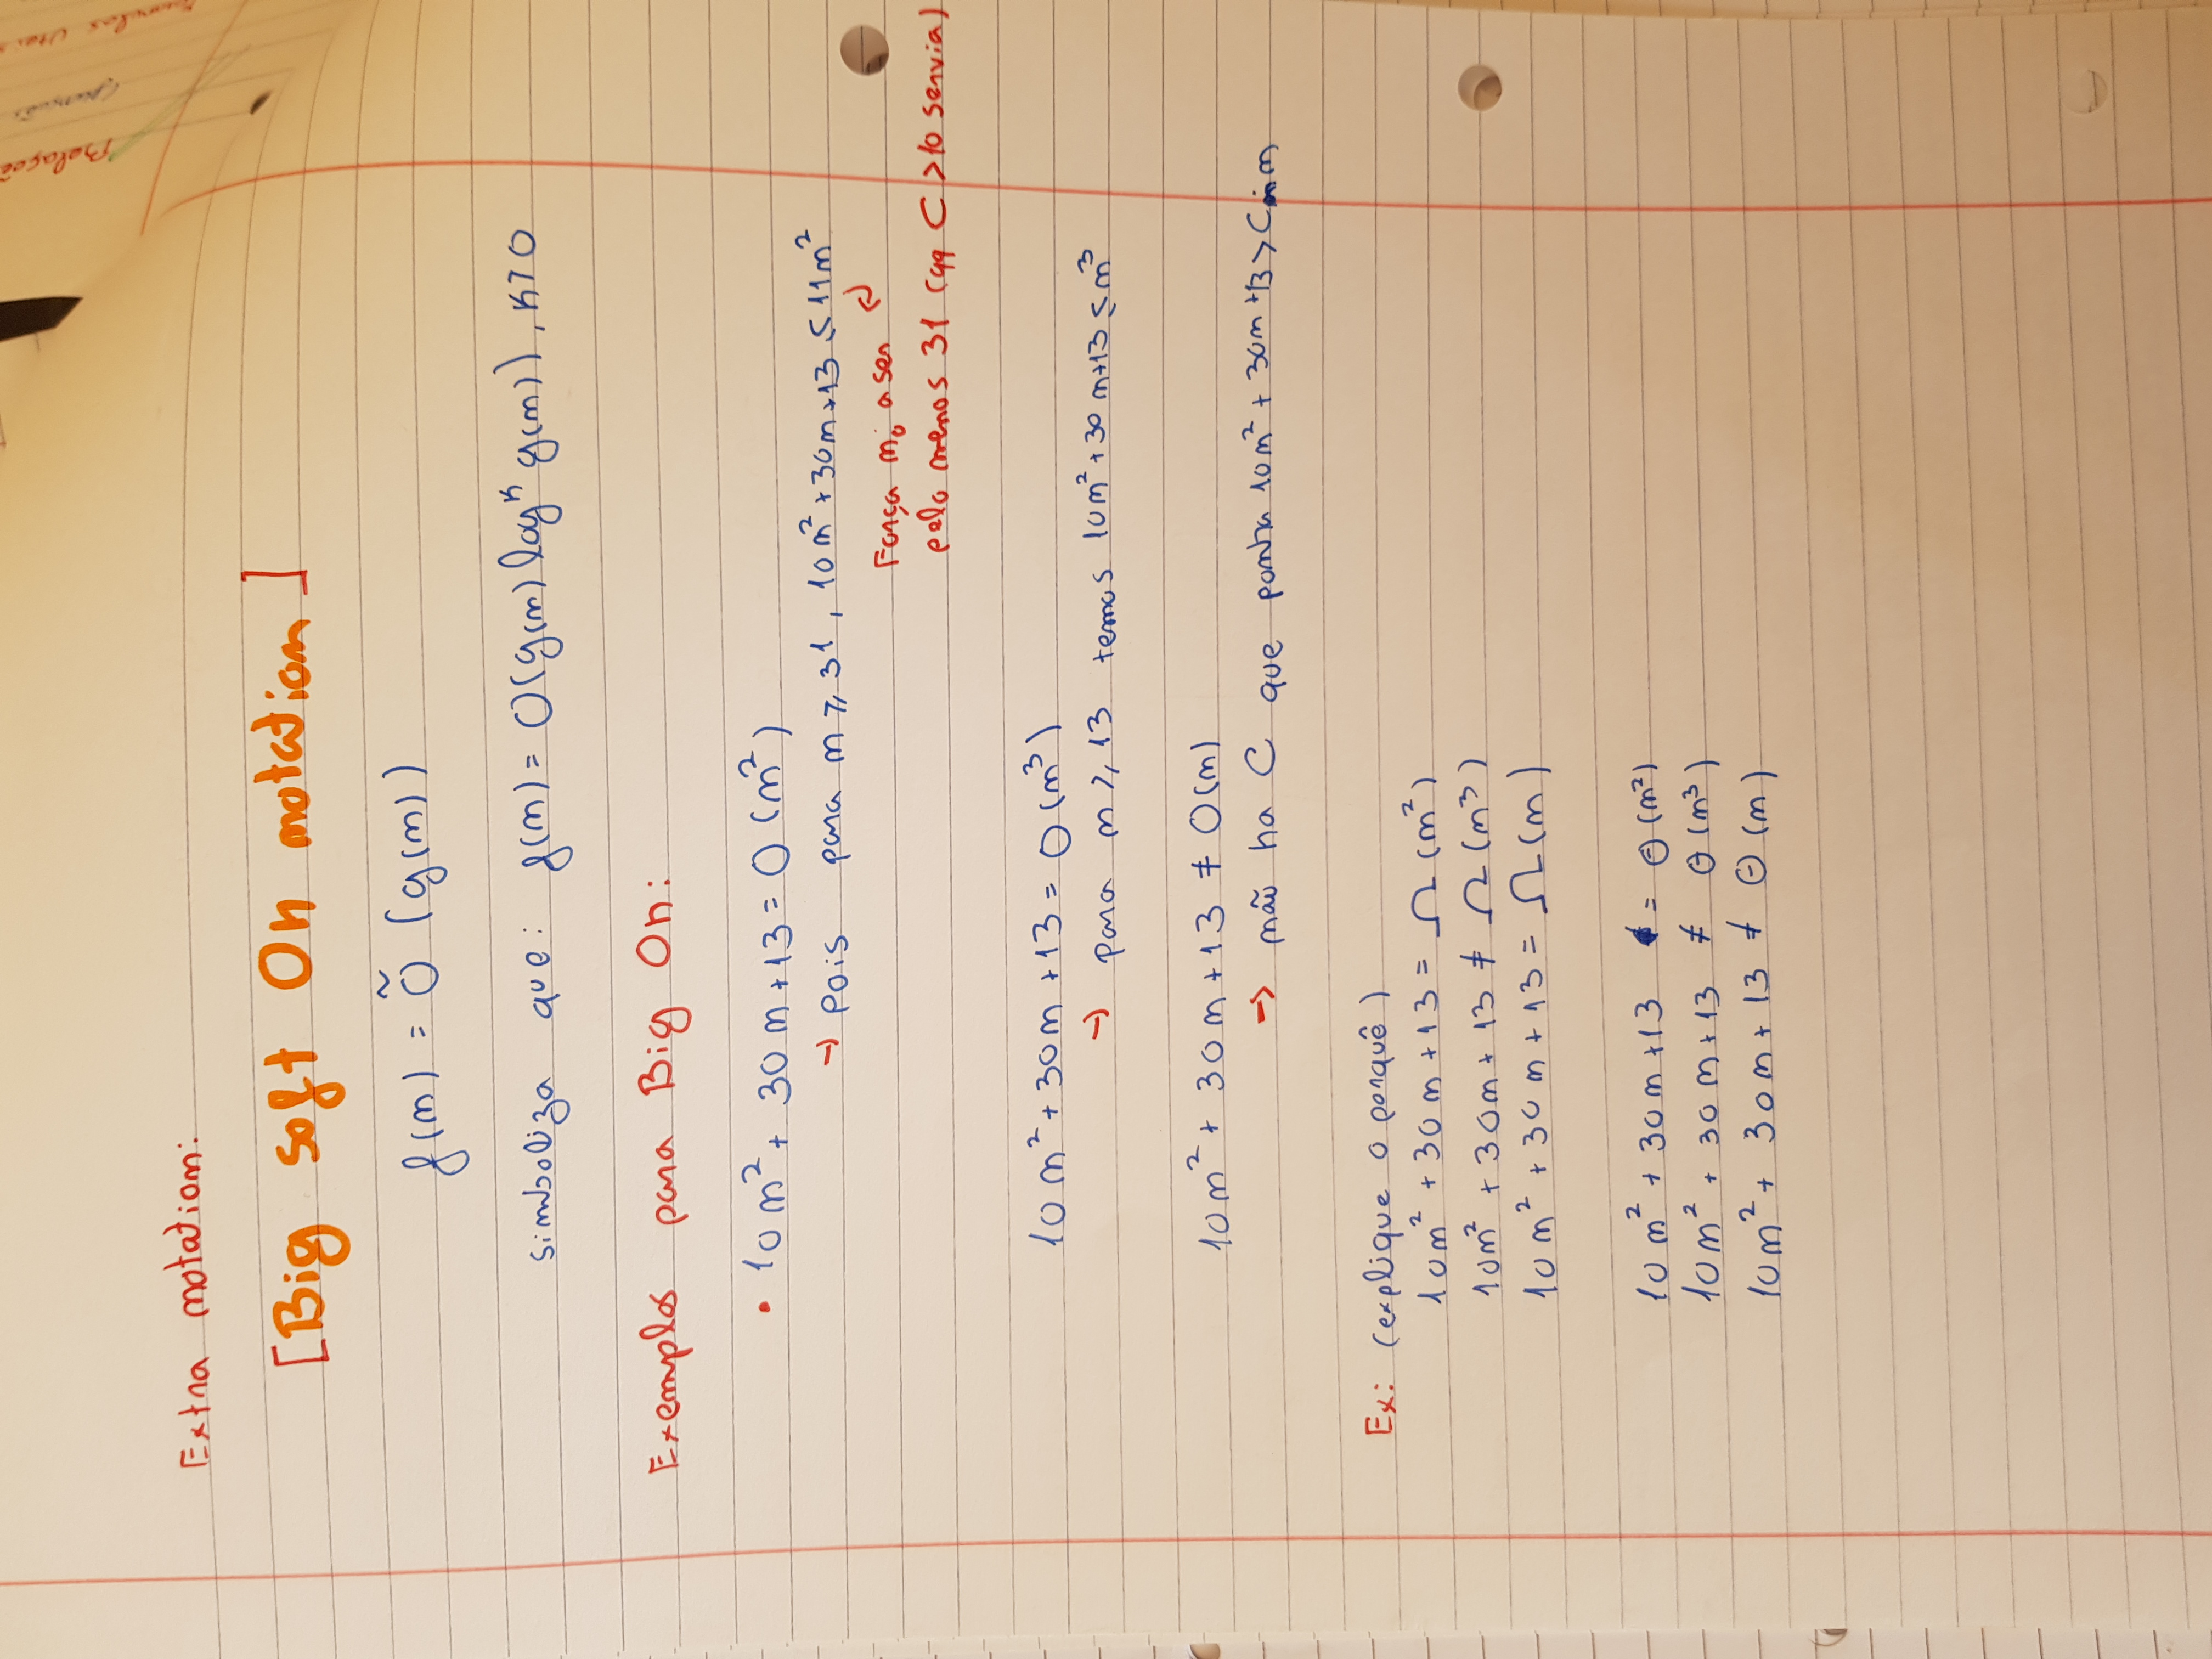 Extra notation:
[Big soft Oh notation]
f(n) = Õ (g(n))
simboliza que: f(n) = O(g(n) logᵏ g(n)), k>0
Exemplos para Big Oh:
• 10n² + 30n + 13 = O(n²)
→ pois para n ≥ 31, 10n² + 30n + 13 ≤ 11n²
Força n₀ a ser
pelo menos 31 (qq C > 10 servia)
10n² + 30n + 13 = O(n³)
→ para n ≥ 13 temos 10n² + 30n + 13 ≤ n³
10n² + 30n + 13 ≠ O(n)
→ não ha C que ponha 10n² + 30n + 13 > C n
Ex: (explique o porquê)
10n² + 30n + 13 = Ω(n²)
10n² + 30n + 13 ≠ Ω(n³)
10n² + 30n + 13 = Ω(n)
10n² + 30n + 13 = Θ(n²)
10n² + 30n + 13 ≠ Θ(n³)
10n² + 30n + 13 ≠ Θ(n)